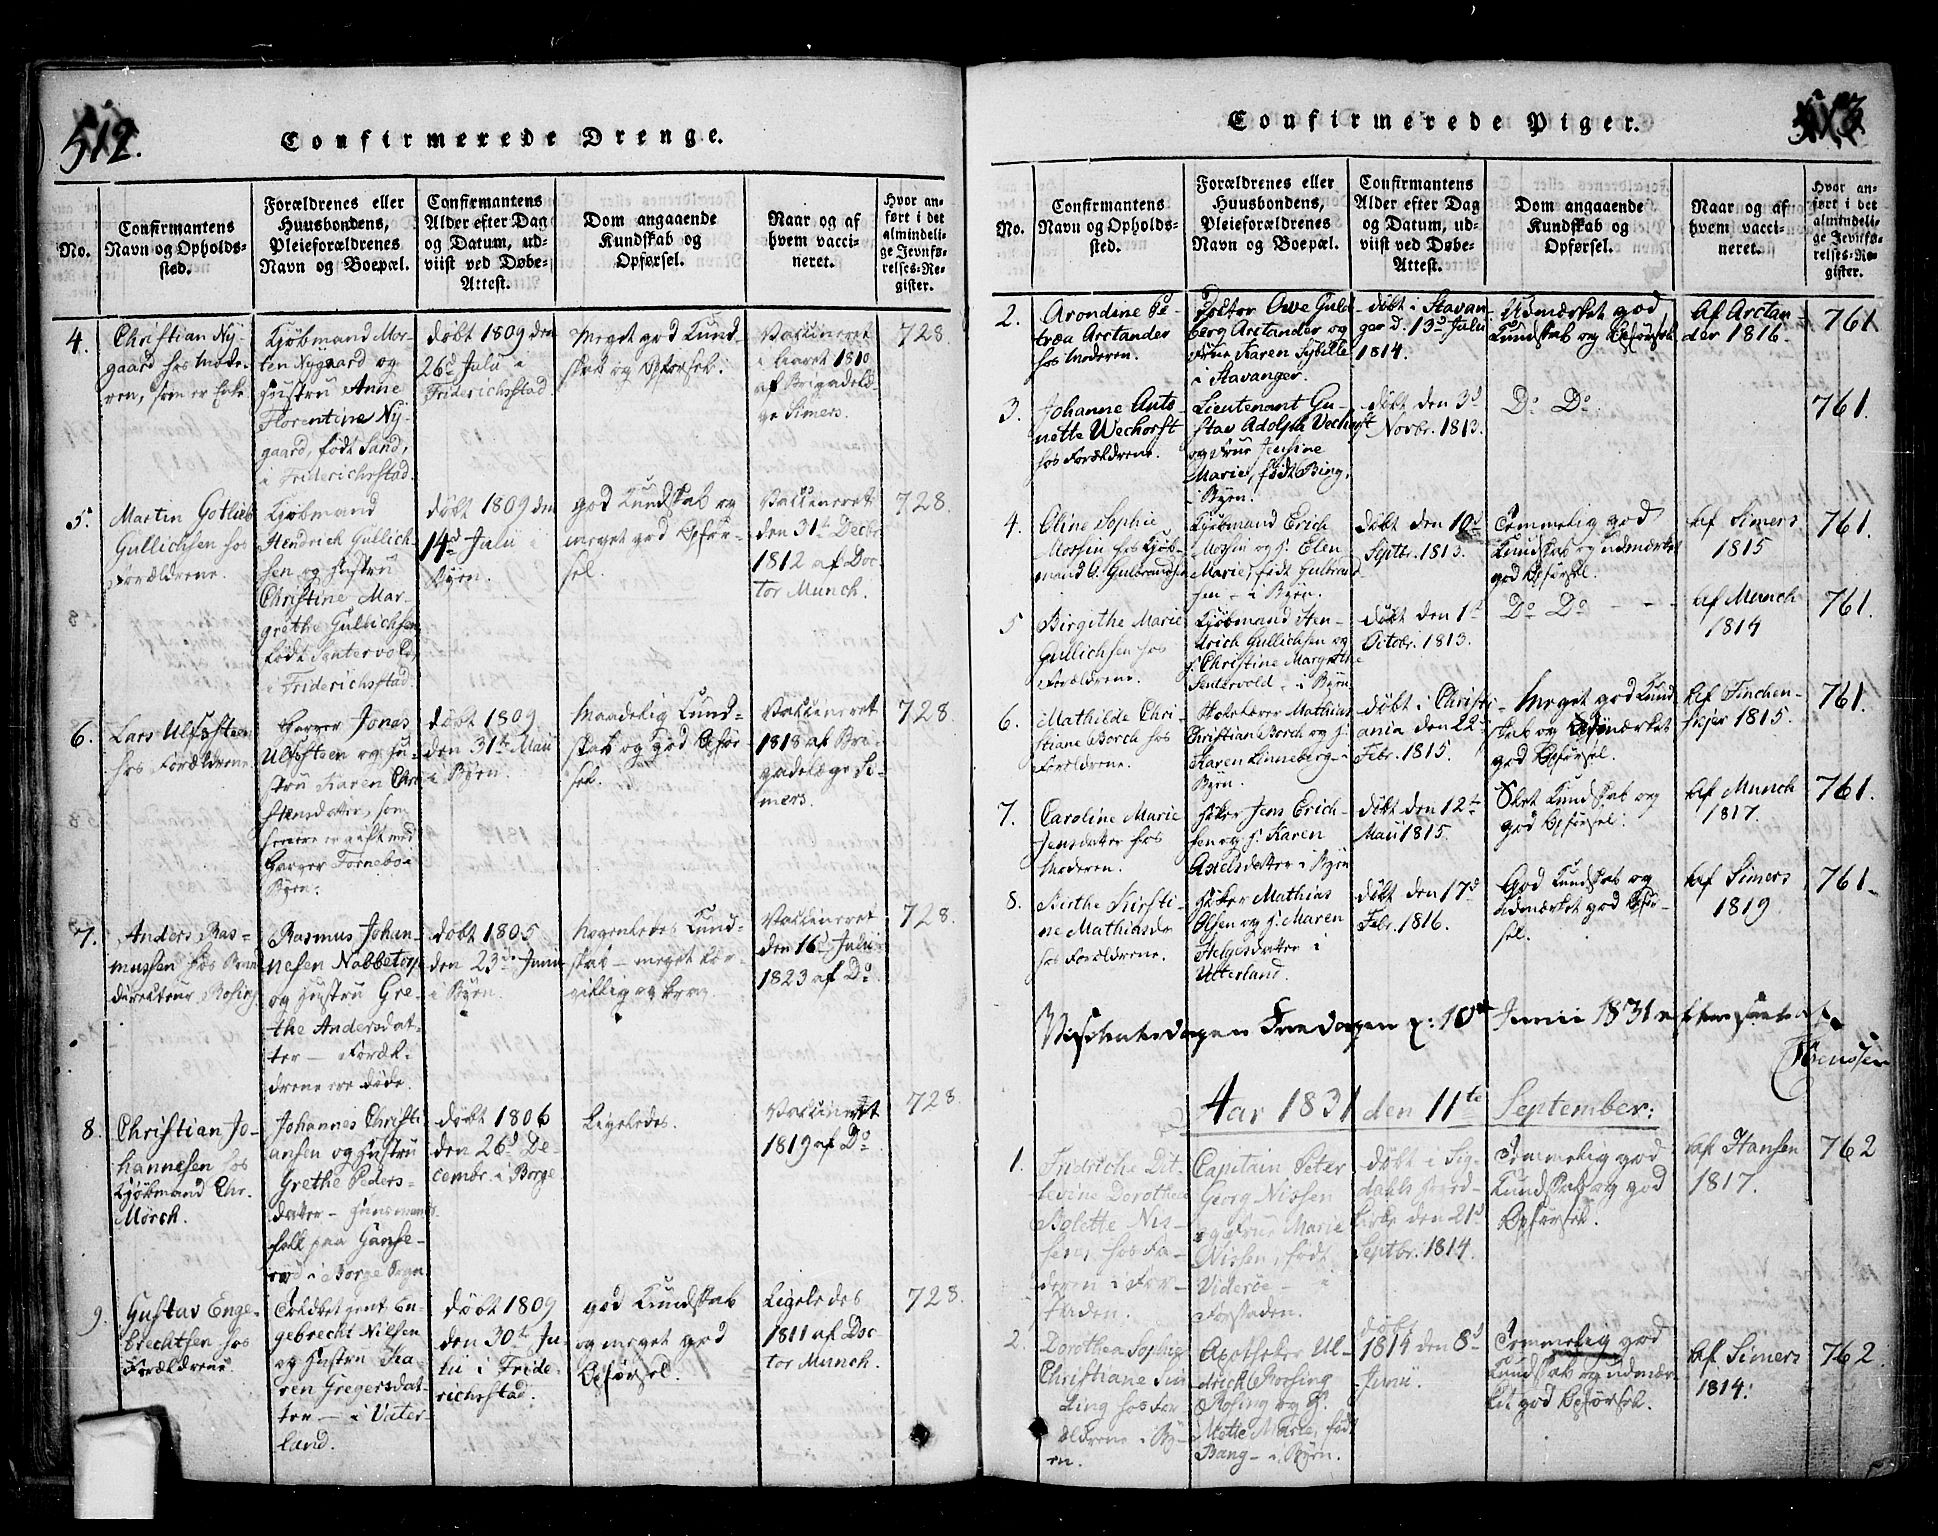 512.
Confirmerede Drenge.
No.
Confirmantens
Navn og Opholds-
sted.
Forældrenes eller
Huusbondens,
Pleieforældrenes
Navn og Boepæl.
Confirmantens
Alder efter Dag
og Datum, ud-
viist ved Døbe-
Attest.
Dom angaaende
Kundskab og
Opførsel.
Naar og af
hvem vacci-
neret.
Hvor an-
ført i det
almindeli-
ge Jevnfø-
relses-Re-
gister.
4.
Christian Ny-
gaard hos Mode-
ren, som er Enke
Kjøbmand Mor-
ten Nygaard og
Hustru Anne
Florentine Ny-
gaard, født Sand,
i Friderichsstad.
døbt 1809 den
26d Julii i
Friderichsstad.
Meget god Kund-
skab og Opførsel.
Vaccineret
i Aaret 1810
af Brigadelæ-
ge Simers.
728.
5.
Martin Gotlieb
Gullichsen hos
Forældrene.
Kjøbmand
Hendrich Gullich-
sen og Hustru
Christine Mar-
grethe Gullichsen
født Sentervold,
i Friderichsstad.
døbt 1809 den
14d Julii i
Byen.
god Kundskab og
meget god Opfør-
sel.
Vaccineret
den 31te Decbr
1812 af Doc-
tor Munch.
728.
6.
Lars Ulfssteen
hos Forældrene.
Garver Jonas
Ulfssteen og Hu-
stru Karen Chri-
stensdatter, som
er gift med
Garver Fornebo i
Byen.
døbt 1809
den 31te Maii
i Byen.
Maadelig Kund-
skab og god Opfør-
sel.
Vaccineret
1818 af Bri-
gadelæge Si-
mers.
728.
7.
Anders Ras-
mussen hos
directeur Rosing
Rasmus Johan-
nesen Nabbetorp
og Hustru Gre-
the Andersdat-
ter - Foræl-
drene ere døde.
døbt 1805
den 23de Junii
i Byen.
Nogenledes Kund-
skab - meget
og brav.
Vaccineret
den 16d Julii
1823 af Do.
728.
8.
Christian Jo-
hannesen hos
Kjøbmand Chr.
Mørch.
Johannes Christi-
ansen og Hustru
Grethe Peders-
datter - Huusmands-
folk paa Hanse-
rød i Borge Sogn
døbt 1806
den 26d De-
cembr. i Borge
Ligeledes.
Vaccineret
1819 af Do
728.
9.
Gustav Enge-
brechtsen hos
Forældrene
En-
gebrecht Nilsen
og Hustru Ka-
ren Gregersdat-
ter - i Vater-
land.
døbt 1809
den 30te Ju-
lii i Fride-
richsstad.
god Kundskab
og meget god
Opførsel.
Ligeledes
1811 af Doc-
tor Munch.
728.
513
Confirmerede Piger.
No.
Confirmantens
Navn og Opholds-
sted.
Forældrenes eller
Huusbondens,
Pleieforældrenes
Navn og Boepæl.
Confirmantens
Alder efter Dag
og Datum, ud-
viist ved Døbe-
Attest.
Dom angaaende
Kundskab og
Opførsel.
Naar og af
hvem vacci-
neret.
Hvor an-
ført i det
almindeli-
ge Jevnfø-
relses-Re-
gister.
2.
Arondine Pe-
træa Arctander
hos Moderen.
Doctor Owe Guld-
berg Arctander og
Frue Karen Sybille
i Stavanger.
døbt i Stavan-
ger d. 13d Julii
1814.
Udmærket god
Kundskab og Opførsel.
Af Arctan-
der 1816.
761
3.
Johanne Anto-
nette Wechorst
hos Forældrene.
Lieutenant Gu-
stav Adolph Vechorst
og Frue Jensine
Marie, født Bing,
i Byen.
døbt den 3d
Novbr. 1813.
Do Do
761.
4.
Eline Sophie
Mossin hos Kjøb-
mand G. Gulbrandsen
Kjøbmand Erich
Mossin og H. Elen
Marie, født Gulbrand-
sen - i Byen.
døbt den 10d
Septbr. 1813.
Temmelig god
Kundskab og udmærket
god Opførsel.
Af Simers
1815
761.
5
Birgithe Marie
Gullichsen hos
Forældrene.
Kjøbmand Hen-
drich Gullichsen og
H. Christine Margrethe
Sentervold - i Byen
døbt den 1te
Octobr. 1813.
Do Do - - -
Af Munch
1814
761.
6.
Mathilde Chri-
stiane Borch hos
Forældrene.
Mathias
Christian Borch og H.
Karen Linneberg - i
Byen.
døbt i Christi-
ania den 22d
Febr. 1815.
Meget god Kund-
skab og udmærket
god Opførsel.
Af Tinchen-
1815.
761.
7.
Caroline Marie
Jensdatter hos
Moderen.
Jens Erich-
sen og H. Karen
Axelsdatter i Byen
døbt den 12te
Maii 1815.
Slet Kundskab og
god Opførsel.
Af Munch
1817.
761.
8.
Birthe Kirsti-
ne Mathiasda
hos Forældrene.
Mathias
Olsen og H. Maren
Helgesdatter i
Vtterland.
døbt den 17d
Febr. 1816.
God Kundskab og
udmærket god Opfør-
sel.
Af Simers
1819
761.
Fredagen d. 10de Junii 1831 efterseet af
Aar 1831 den 11te September.
1.
Fridriche Dit-
levine Dorothea
Bolette Nis-
sen, hos Fa-
deren i For-
staden.
Capitain Peter
Georg Nissen
og Frue Marie
Nissen, født
Videröe - i
Forstaden.
døbt i Sig-
dahls
kirke den 21d
Septbr. 1814.
Temmelig god
Kundskab og god
Opførsel.
Af Hansen
1817.
762
2.
Dorothea Sophie
Christiane
hos For-
ældrene i By-
en.
Apotheker Ul-
drich Rosing
Rosing og F.
Mette Marie, født
Bang - i Byen.
døbt
1814 den 8d
Junii.
Temmelig god
Kundskab og udmær-
ket god Opførsel.
Af Simers
1814.
762.